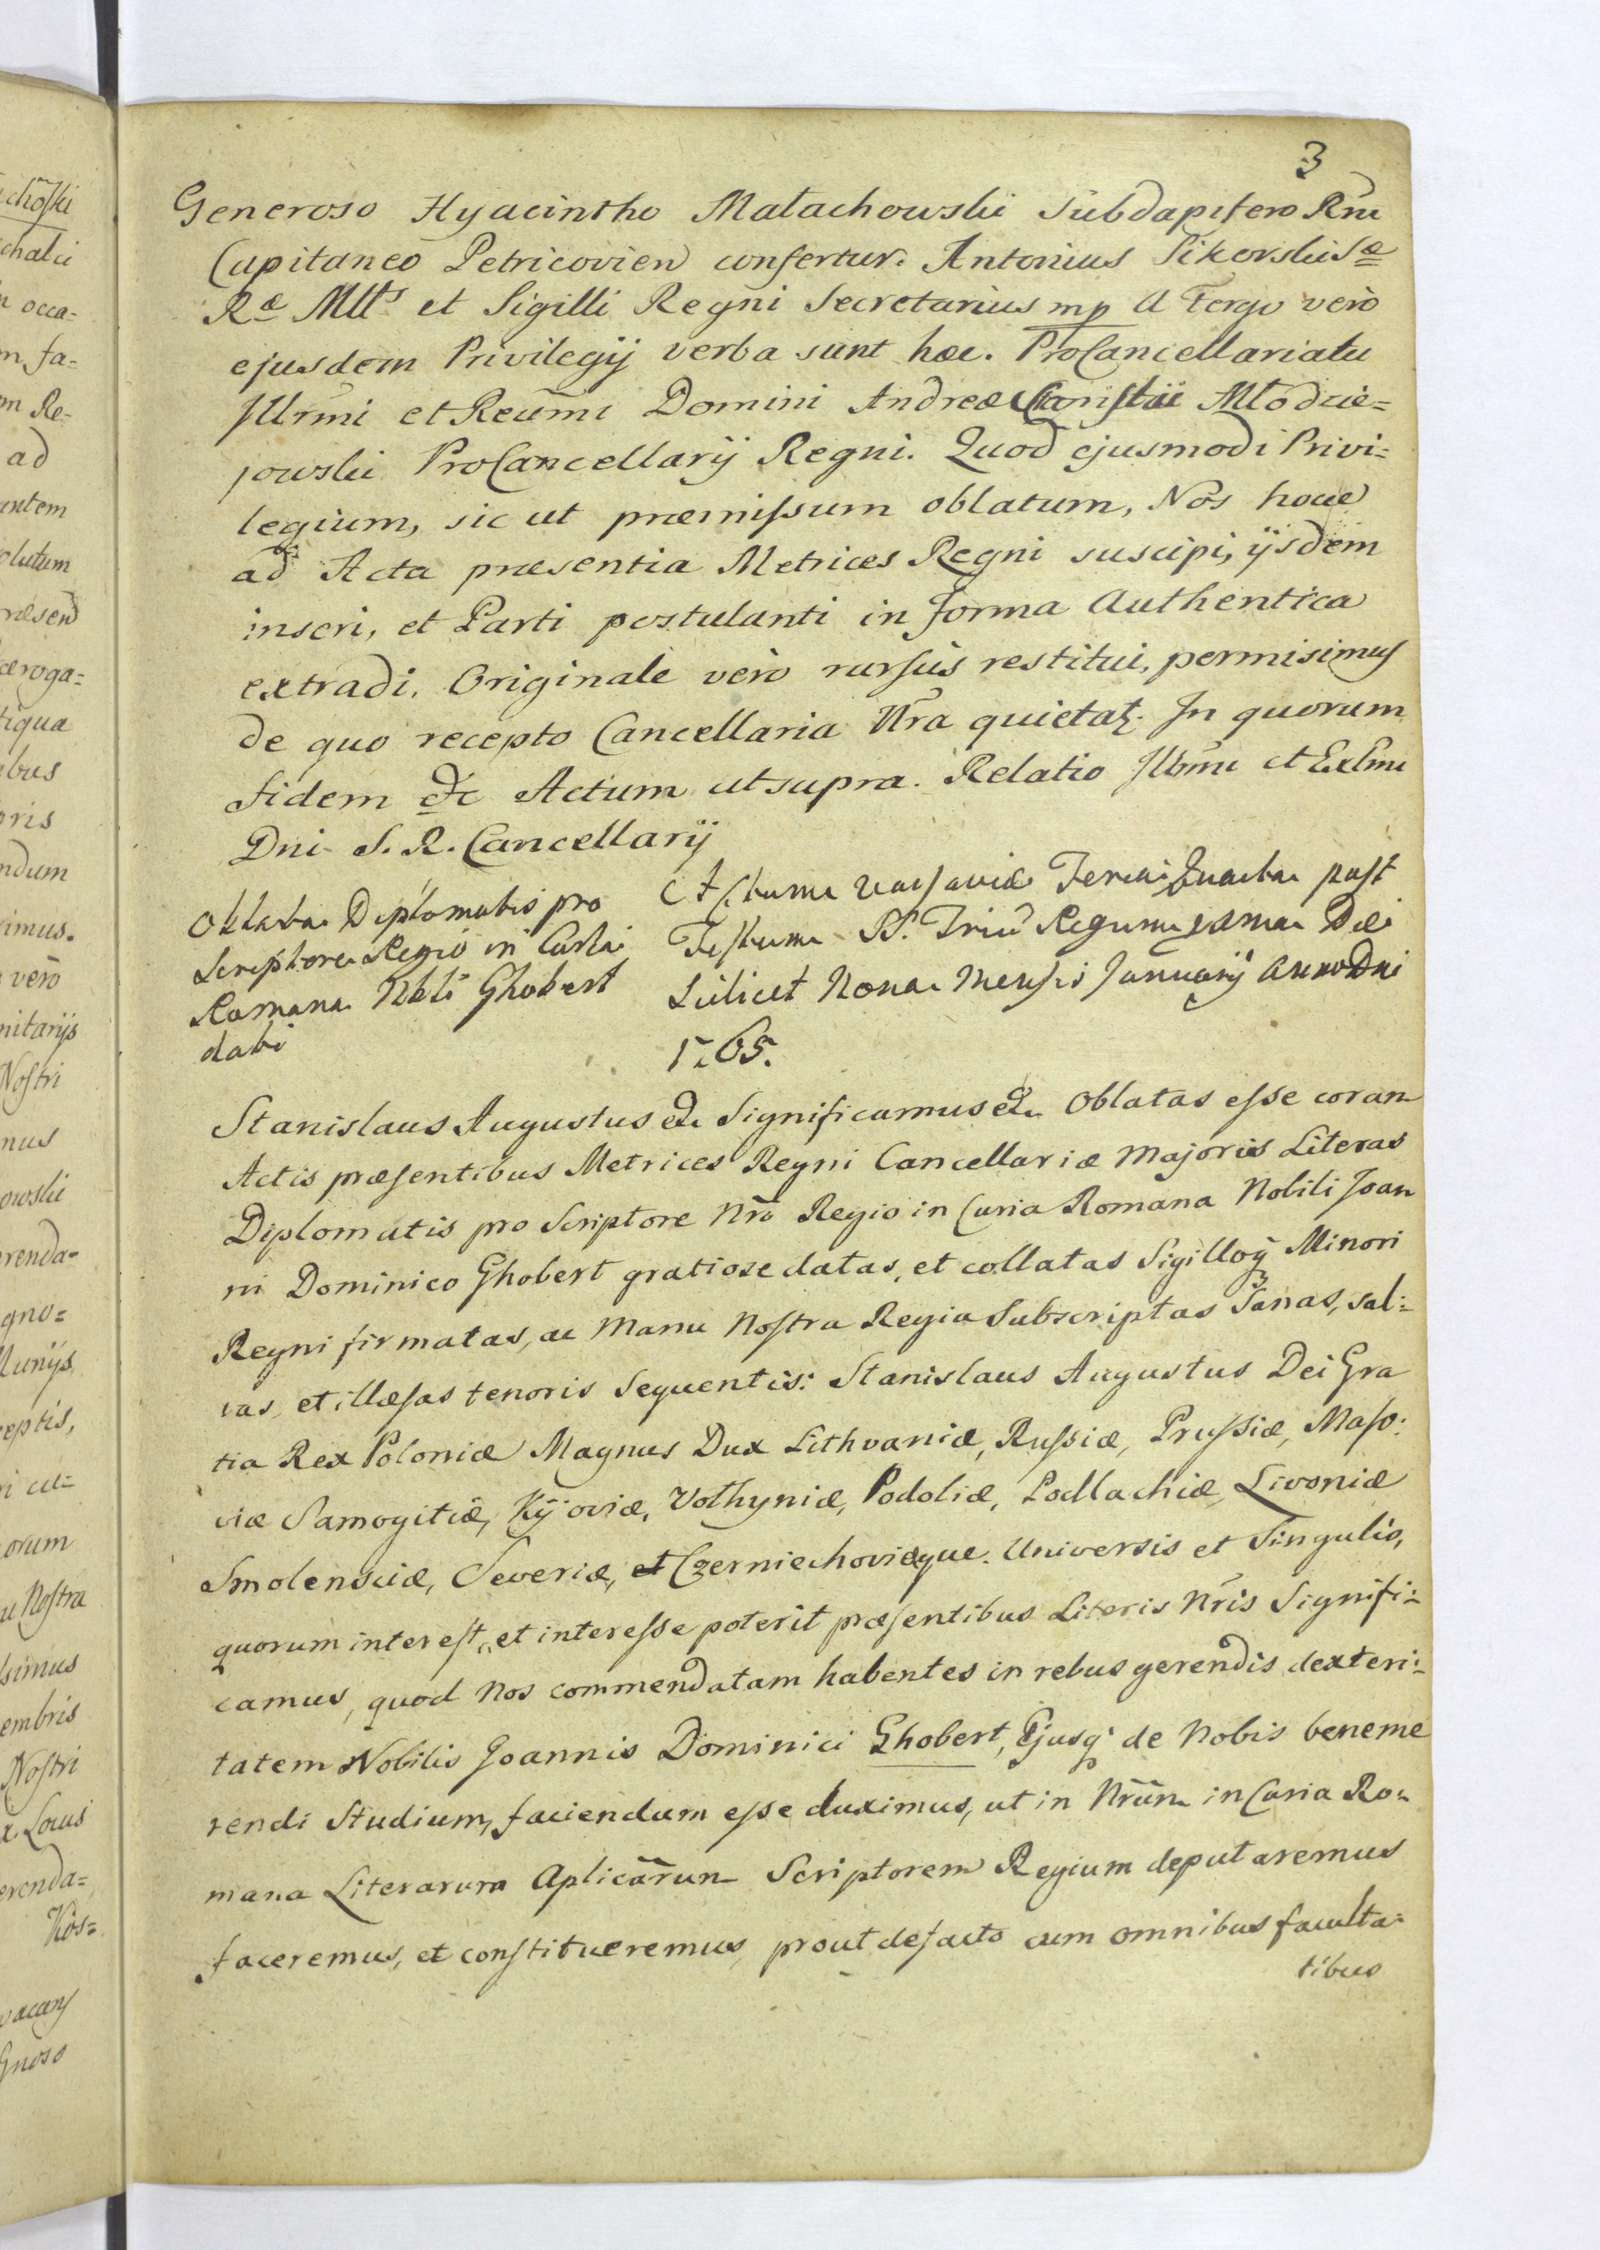 3
Generoso Hyacintho Małachowski Subdapifero Rni
Capitaneo Petricovien confertur. Antonius Sikorski Sæ
Ræ Mtts et Sigilli Regni Secretarius mp A Tergo vero
ejusdem Privilegij verba sunt hæc. ProCancellariatu
Jllrmi et Reumi Domini Andreæ Młodzie=
jowski ProCancellarij Regni. Quod ejusmodi Privi=
legium, sic ut præmissum oblatum, Nos hocce
ad Acta præsentia Metrices Regni suscipi, ijsdem
inseri, et Parti postulanti in forma Authentica
extradi. Originale vero rursus restitui, permisimus
de quo recepto Cancellaria Nra quietat. In quorum
fidem etc Actum ut supra. Relatio Jllrmi et Exlmi
Dni S. R. Cancellarij
Oblata Diplomatis pro
Scriptore Regio in Curia
Romana Nbli Ghobert
dati
Actum Varsaviæ Feria Quarta post
Festum SS. Triu Regum Die
Scilicet Nona Mensis January Anno Dni
1765.
Stanislaus Augustus etc Significamus etc Oblatas esse coram
Actis præsentibus Metrices Regni Cancellariæ Majoris Literas
Diplomatis pro Scriptore Nro Regio in Curia Romana Nobili Joan
ni Dominico Ghobert gratiose datas, et collatas Sigilloq Minori
Regni firmatas, ac Manu Nostra Regia Subscriptas Sanas, sal=
vas, et illæsas tenoris Sequentis: Stanislaus Augustus Dei Gra
tia Rex Poloniæ Magnus Dux Lithvaniæ, Russiæ, Prussiæ, Maso=
viæ Samogitiæ, Kijoviæ, Volhyniæ, Podoliæ, Podlachiæ, Livoniæ
Smolensciæ, Severiæ, et Czerniechoviæque. Universis et Singulis,
quorum interest, et interesse poterit præsentibus Literis Nris Signifi=
camus, quod Nos commendatam habentes in rebus gerendis dexteri=
tatem Nobilis Joannis Dominici Ghobert, Ejusq de Nobis beneme
rendi Studium, faciendum esse duximus, ut in Nrum in Curia Ro=
mana Literarum Aplicarum Scriptorem Regium deputaremus
faceremus, et constitueremus, prout de facto cum omnibus faculta=
tibus